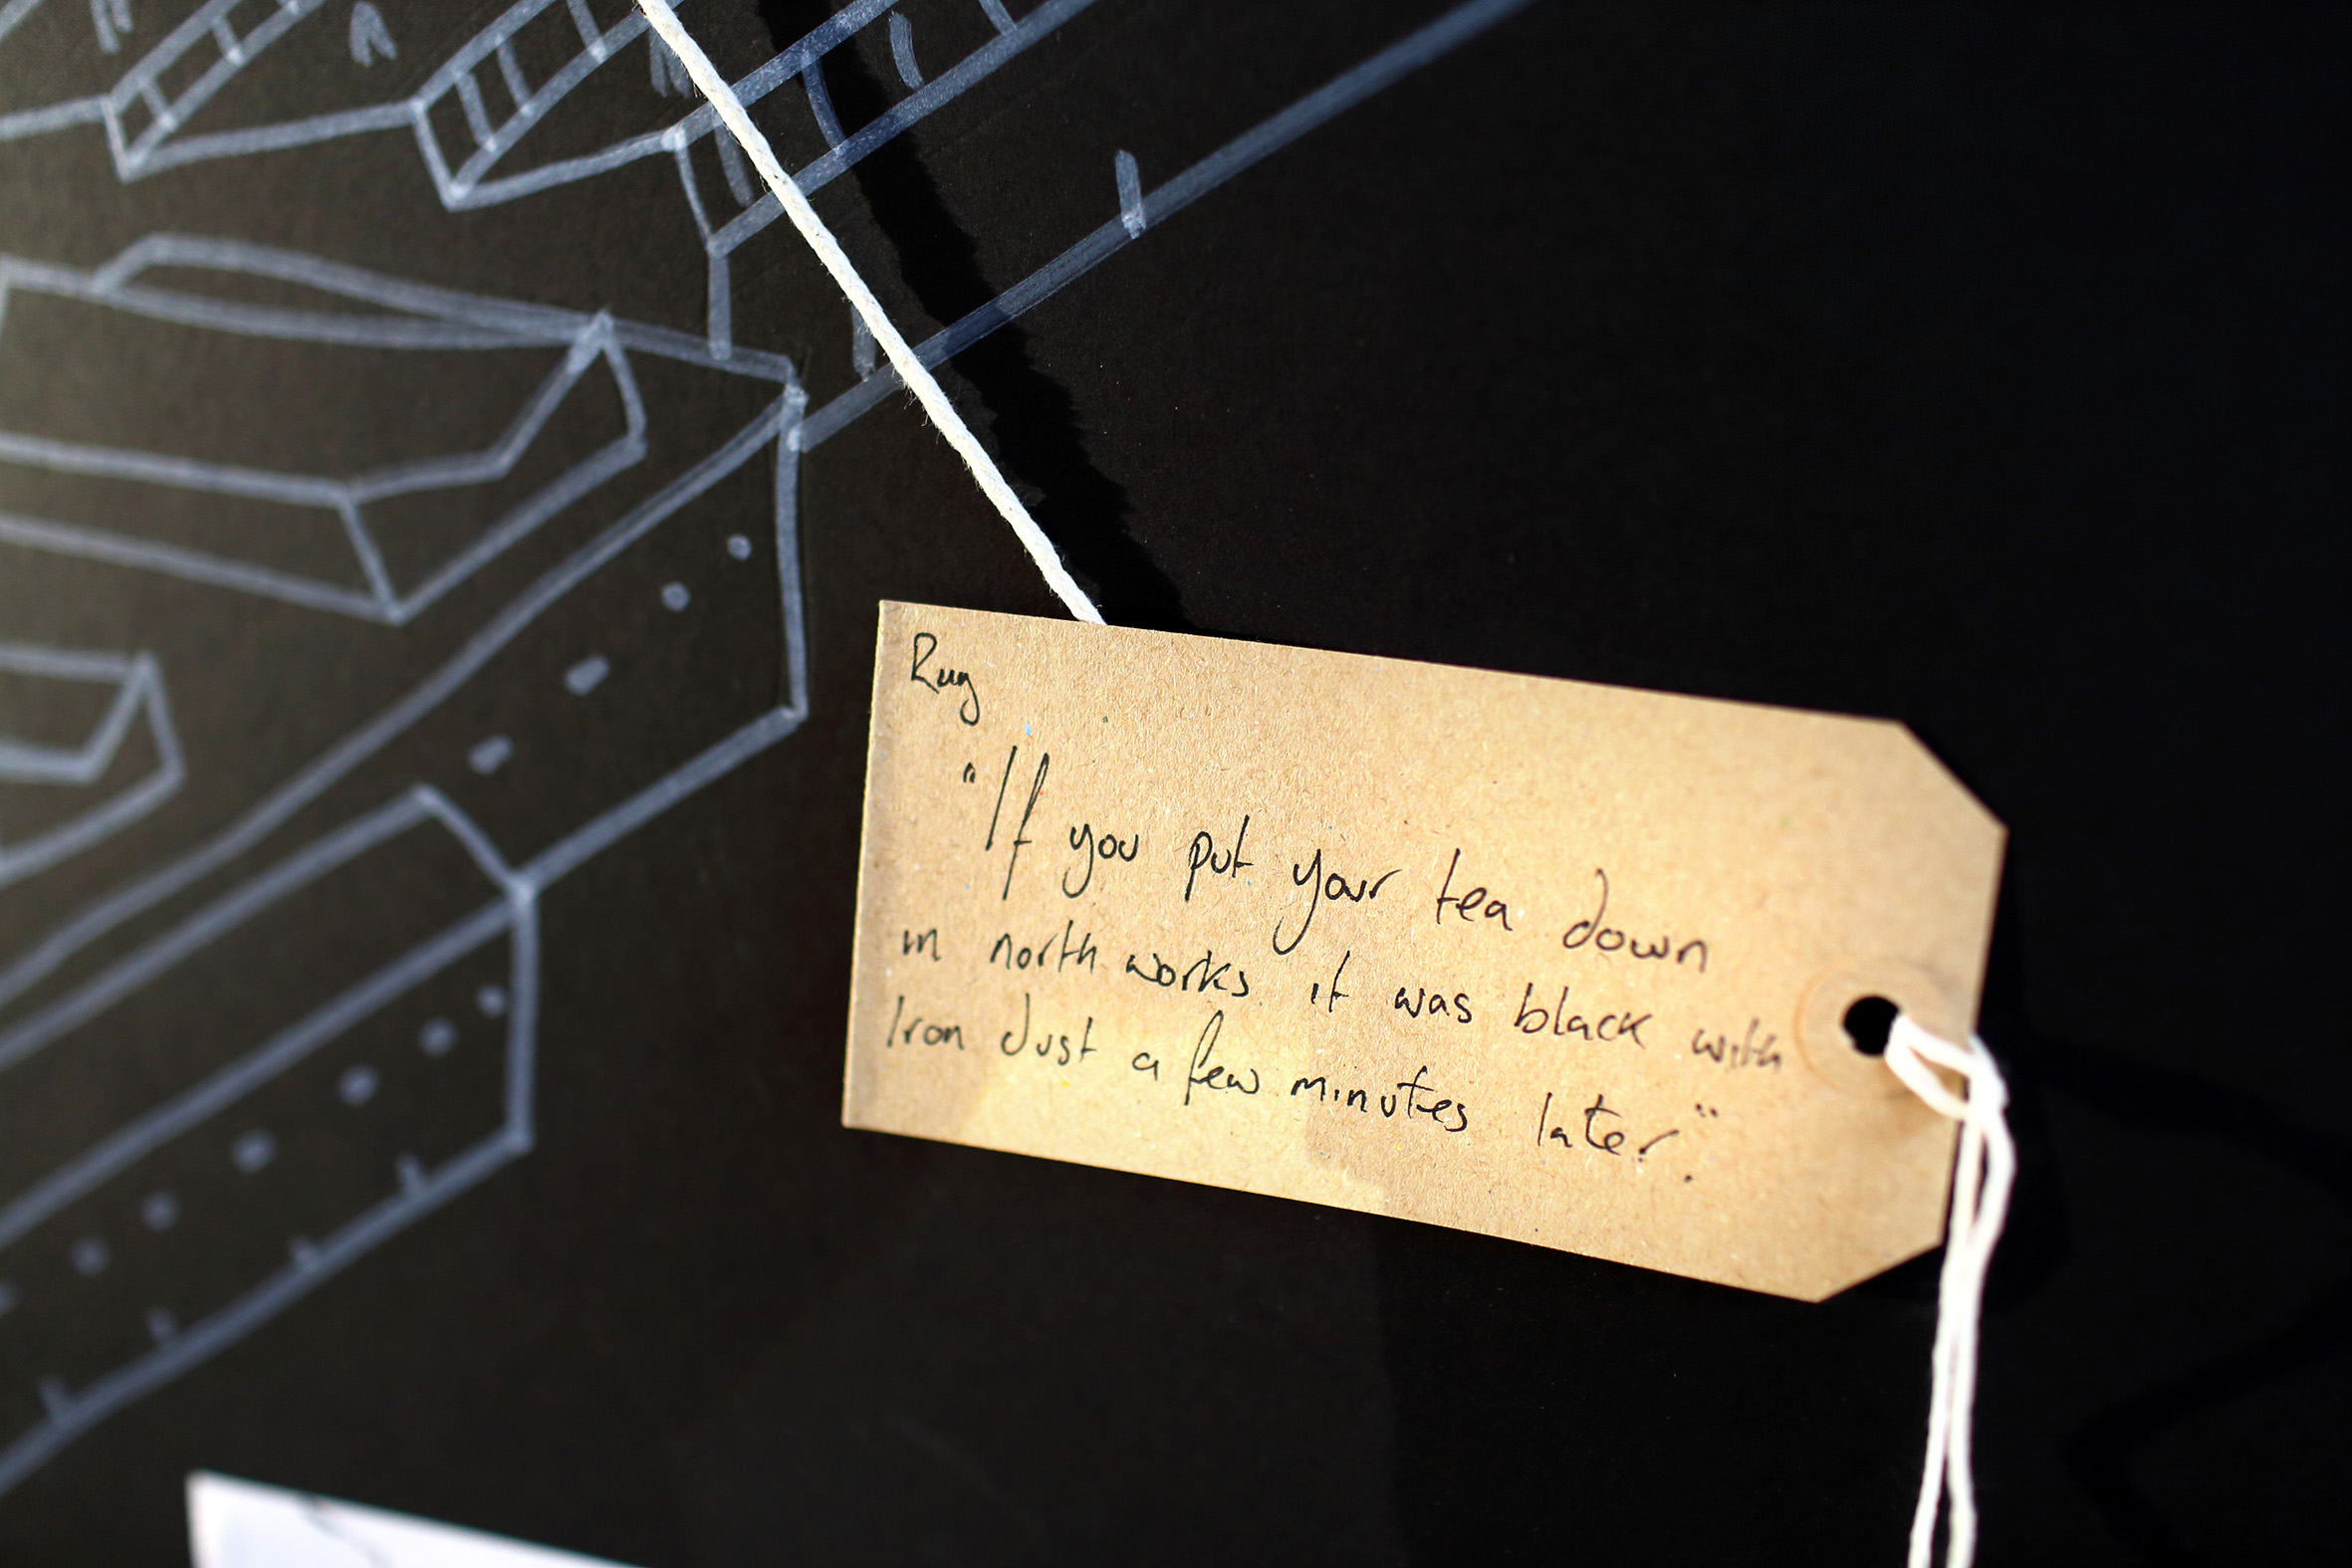 Rug
"If you put your tea down
in north works it was black with
Iron dust a few minutes later."